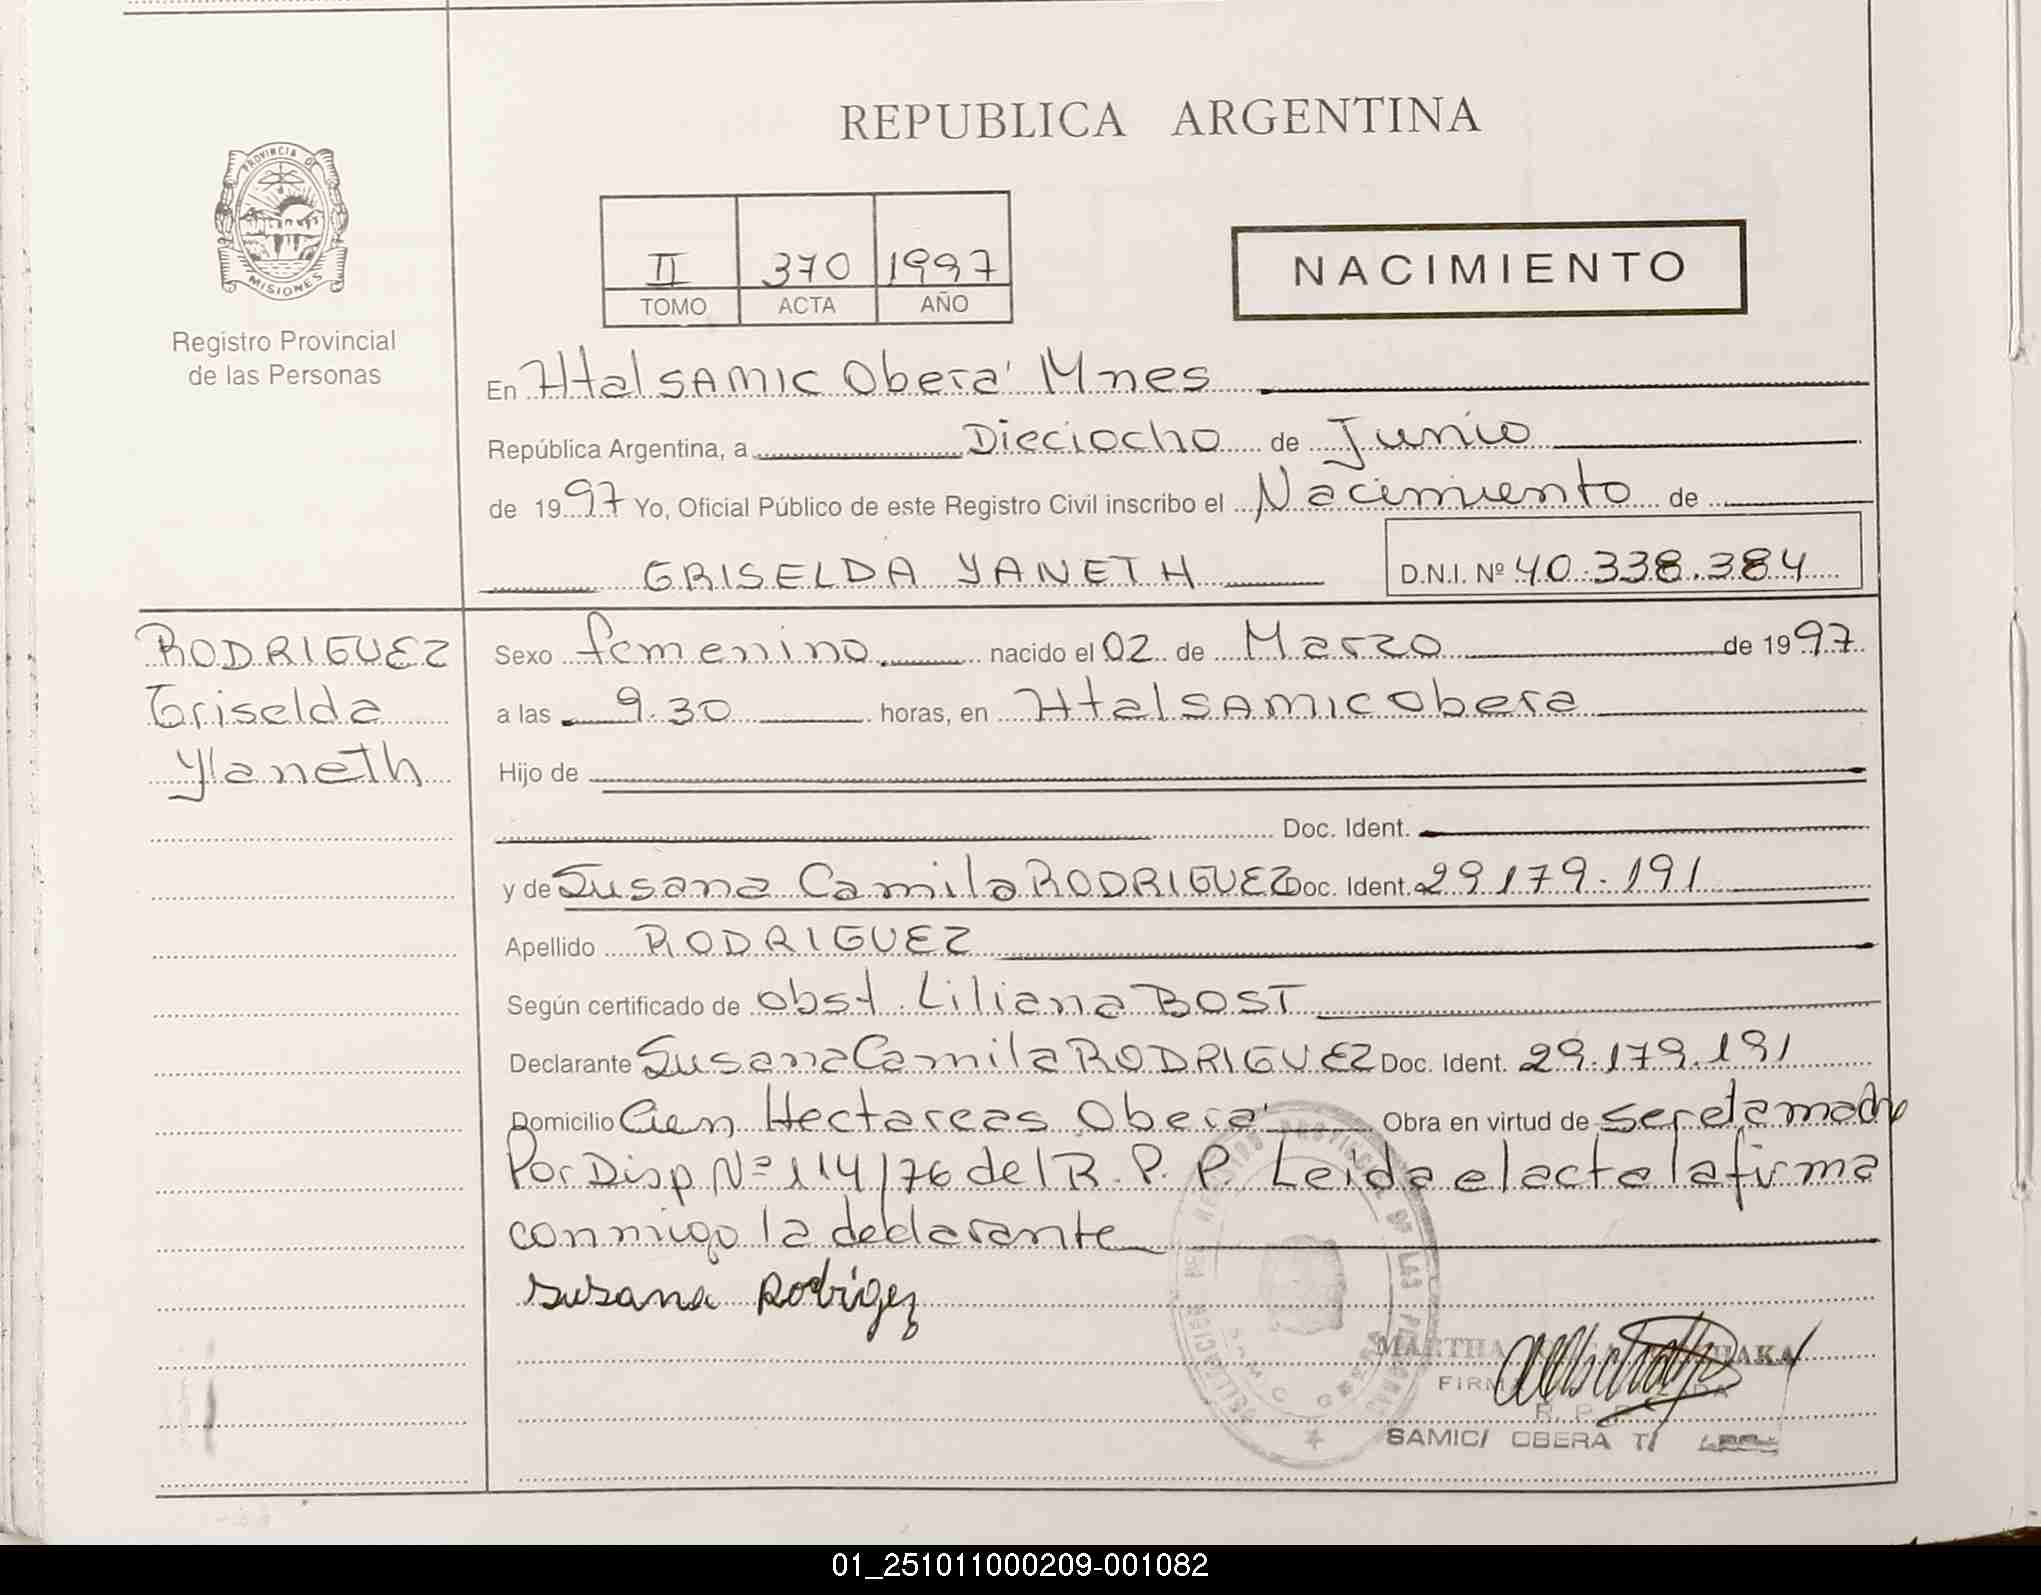 REPUBLICA ARGENTINA
PROVINCIA DE
MISIONES
Registro Provincial
de las Personas
II 370 1997
TOMO ACTA AÑO
NACIMIENTO
En Htal SAMIC Oberá Mnes
República Argentina, a Dieciocho de Junio
de 1997 Yo, Oficial Público de este Registro Civil inscribo el Nacimiento de
GRISELDA YANETH D.N.I. Nº 40.338.384
RODRIGUEZ
Griselda
Yaneth
Sexo femenino. nacido el 02 de Marzo de 1997
a las 9.30 horas, en Htal SAMIC Obera
Hijo de
Doc. Ident.
y de Susana Camila RODRIGUEZ Doc. Ident. 29179.191
Apellido RODRIGUEZ
Según certificado de obst. Liliana BOST
Declarante Susana Camila RODRIGUEZ Doc. Ident. 29.179.191
Domicilio Cien Hectareas Oberá Obra en virtud de ser la madre
Por Disp Nº 114/76 del R. P. P. Leida el acta la firma
conmigo la declarante
Susana Rodrigez
MARTHA
R. P.
SAMIC/ OBERA
01_251011000209-001082